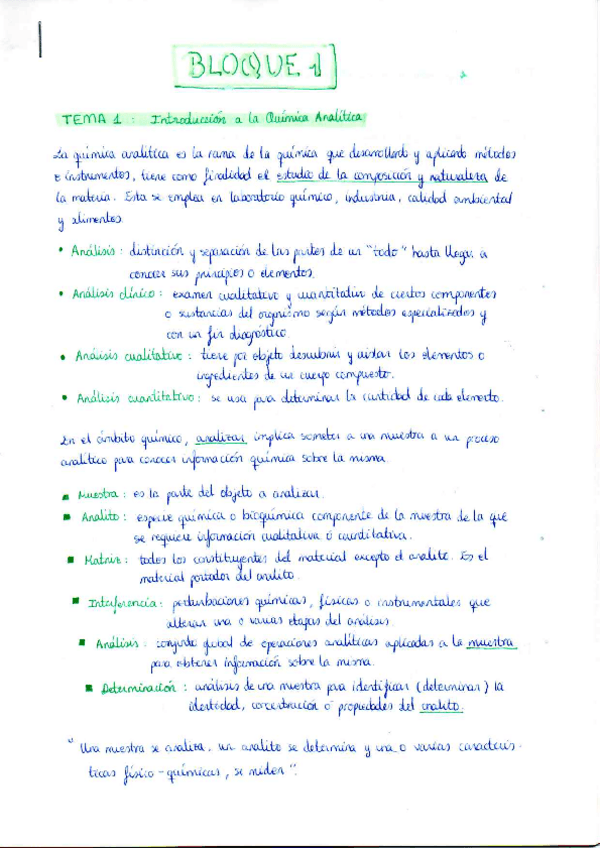 BLOQUE 1
TEMA 1 : Introducción a la Química Analítica
La química analítica es la rama de la química que desarrollando y aplicando métodos
e instrumentos, tiene como finalidad el estudio de la composición y naturaleza de
la materia. Esta se emplea en laboratorio químico, industria, calidad ambiental
y alimentos.
• Análisis : distinción y separación de las partes de un "todo" hasta llegar a
conocer sus principios o elementos.
• Análisis clínico : examen cualitativo y cuantitativo de ciertos componentes
o sustancias del organismo según métodos especializados y
con un fin diagnóstico.
• Análisis cualitativo : tiene por objeto descubrir y aislar los elementos o
ingredientes de un cuerpo compuesto.
• Análisis cuantitativo : se usa para determinar la cantidad de cada elemento.
En el ámbito químico, analizar implica someter a una muestra a un proceso
analítico para conocer información química sobre la misma.
■ Muestra : es la parte del objeto a analizar.
■ Analito : especie química o bioquímica componente de la muestra de la que
se requiere información cualitativa o cuantitativa.
■ Matriz : todos los constituyentes del material excepto el analito. Es el
material portador del analito.
■ Interferencia : perturbaciones químicas, físicas o instrumentales que
alteran una o varias etapas del análisis.
■ Análisis : conjunto global de operaciones analíticas aplicadas a la muestra
para obtener información sobre la misma.
■ Determinación : análisis de una muestra para identificar (determinar) la
identidad, concentración o propiedades del analito.
"Una muestra se analiza, un analito se determina y una o varias caracterís-
ticas físico-químicas, se miden".